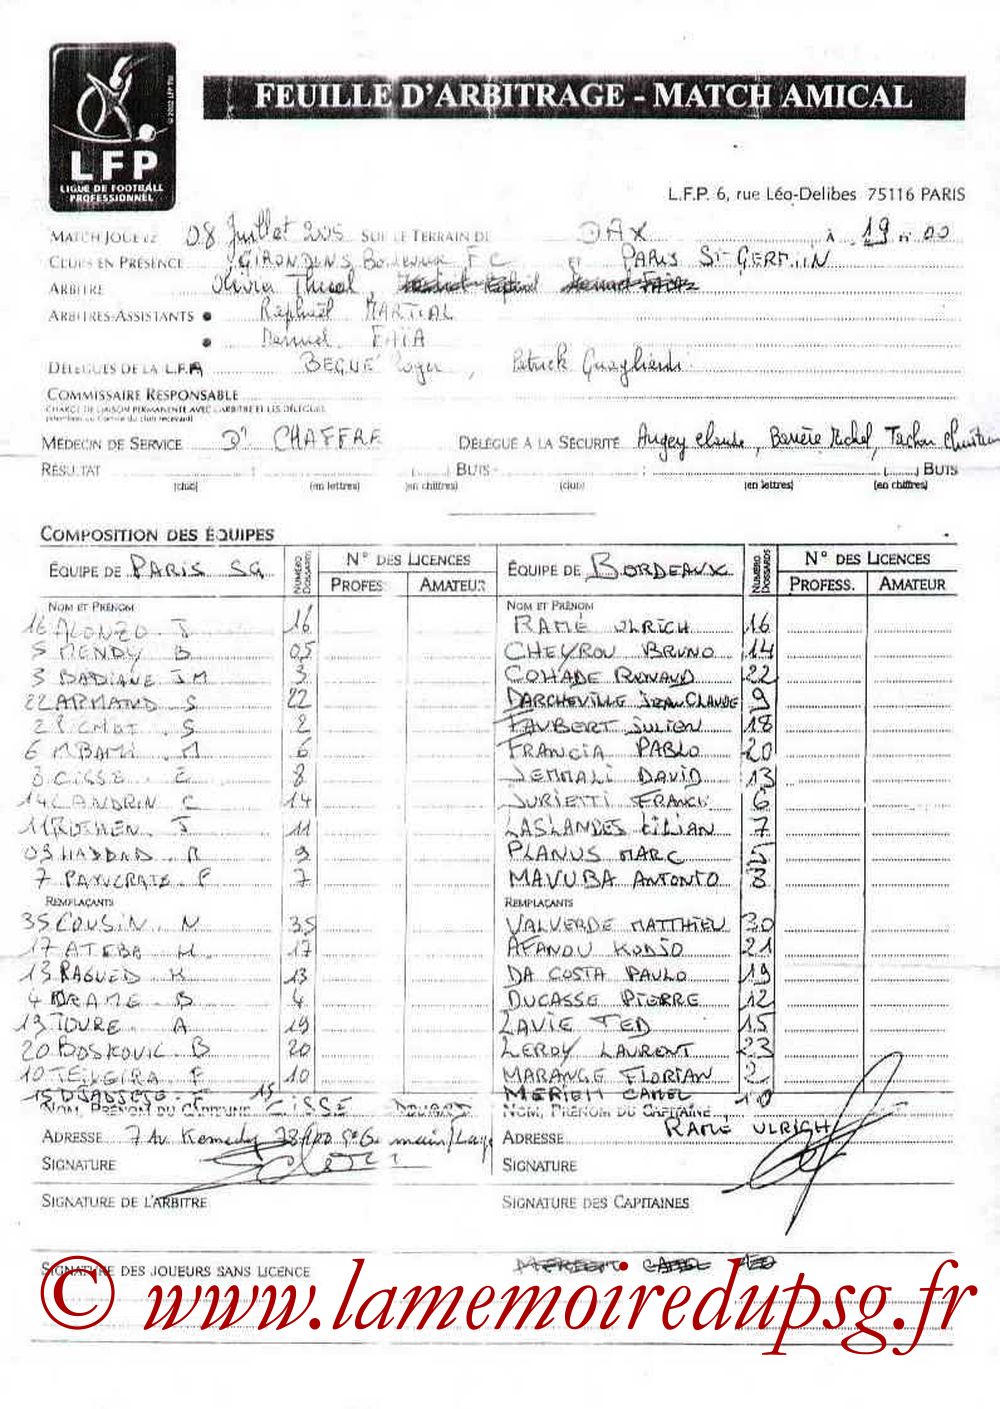 © 2002 LFP TM
LFP
LIGUE DE FOOTBALL
PROFESSIONNEL
FEUILLE D'ARBITRAGE - MATCH AMICAL
L.F.P. 6, rue Léo-Delibes 75116 PARIS
MATCH JOUÉ LE 08 Juillet 2005 SUR LE TERRAIN DE DAX À 19 H 00
CLUBS EN PRÉSENCE GIRONDINS Bordeaux F C et PARIS ST-GERMAIN
ARBITRE Thual
ARBITRES-ASSISTANTS • Raphaël MARTIAL
•
DÉLÉGUÉS DE LA L.F.A BEGUÉ Roger, Patrick
COMMISSAIRE RESPONSABLE
CHARGÉ DE LIAISON PERMANENTE AVEC L'ARBITRE ET LES DÉLÉGUÉS
MÉDECIN DE SERVICE Dr CHAFFRE DÉLÉGUÉ À LA SÉCURITÉ Augey Claude, Barrère Michel, Tachon Christian
RÉSULTAT : (......) BUTS : (......) BUTS
(club) (en lettres) (en chiffres) (club) (en lettres) (en chiffres)
COMPOSITION DES ÉQUIPES
ÉQUIPE DE PARIS SG NUMÉRO DOSSARDS N° DES LICENCES ÉQUIPE DE BORDEAUX NUMÉRO DOSSARDS N° DES LICENCES
PROFESS. AMATEUR PROFESS. AMATEUR
NOM ET PRÉNOM NOM ET PRÉNOM
16 ALONZO J 16 RAMÉ ULRICH 16
5 MENDY B 05 CHEYROU BRUNO 14
3 BADIANE JM 3 COHADE RENAUD 22
22 ARMAND S 22 DARCHEVILLE JEAN CLAUDE 9
2 PICHOT S 2 FAUBERT JULIEN 18
6 MBAMI M 6 FRANCIA PABLO 20
8 CISSE E 8 JEMMALI DAVID 13
14 LANDRIN C 14 JURIETTI FRANCK 6
11 ROTHEN J 11 LASLANDES LILIAN 7
09 HADDAD R 9 PLANUS MARC 5
7 PANCRATE F 7 MAVUBA ANTONIO 8
REMPLAÇANTS REMPLAÇANTS
35 COUSIN N 35 VALVERDE MATTHIEU 30
17 ATEBA H 17 AFANOU KODJO 21
13 RAGUED K 13 DA COSTA PAULO 19
4 DRAME B 4 DUCASSE PIERRE 12
19 TOURE A 19 LAVIE TED 15
20 BOSKOVIC B 20 LEROY LAURENT 23
10 TEIXEIRA F 10 MARANGE FLORIAN 2
15 DJADJEJE F 15 MERIEM CAMEL 10
NOM, PRÉNOM DU CAPITAINE CISSE EDOUARD NOM, PRÉNOM DU CAPITAINE RAMÉ ULRICH
ADRESSE 7 Av. Kennedy 78100 St Germain/Laye ADRESSE
SIGNATURE SIGNATURE
SIGNATURE DE L'ARBITRE SIGNATURE DES CAPITAINES
SIGNATURE DES JOUEURS SANS LICENCE
© www.lamemoiredupsg.fr